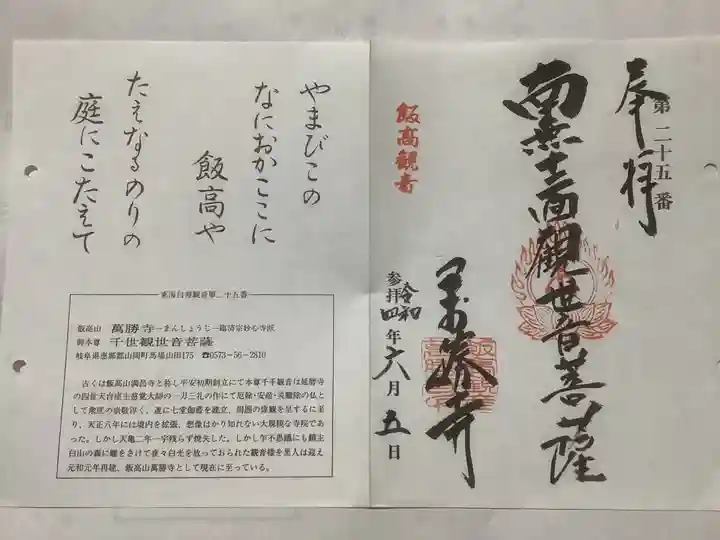 やまびこの
なにおかここに
飯高や
たえなるのりの
庭にこたえて
東海白寿観音第二十五番
飯高山 萬勝寺―まんしょうじ―臨済宗妙心寺派
御本尊 千世観世音菩薩
岐阜県恵那郡山岡町馬場山田175 ☎0573-56-2810
古くは飯高山満昌寺と称し平安初期創立にて本尊千手観音は延暦寺
の四世天台座主慈覚大師の一刀三礼の作にて厄除・安産・災難除の仏と
して衆庶の崇敬淳く、遂に七堂伽藍を建立、周囲の偉観を呈するに至
り、天正八年には境内を拡張、想像はかり知れない大規模な寺院であ
った。しかし天亀二年一宇残らず焼失した。しかし乍不思議にも鎮主
白山の森に難をさけて夜々白光を放っておられた観音様を里人は迎え
元和元年再建、飯高山萬勝寺として現在に至っている。
第二十五番
奉拝
南無十一面観世音菩薩
飯高観音
萬勝寺
参拝 令和四年六月五日